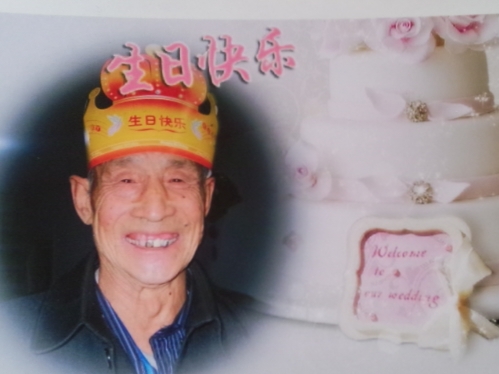 生日快乐
生日快乐
Welcome
to
our wedding